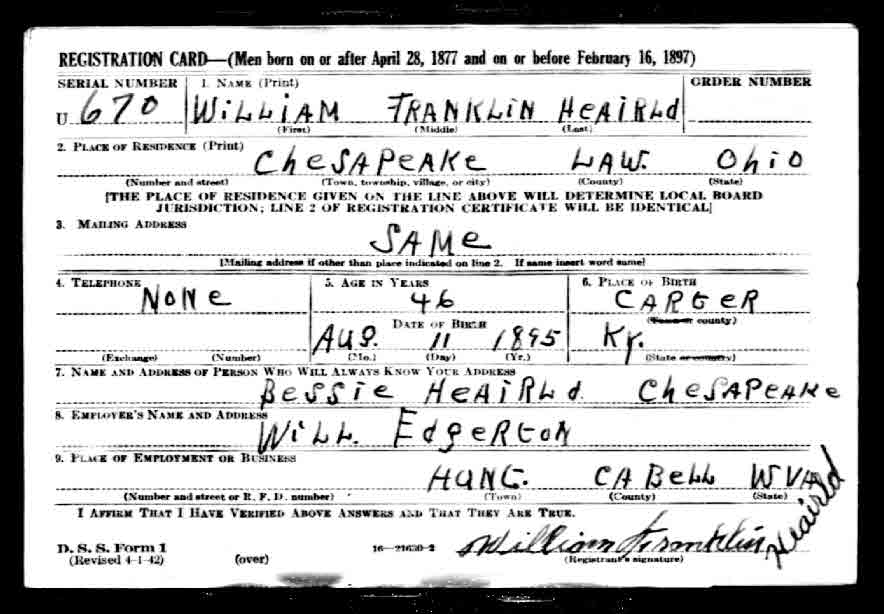 REGISTRATION CARD—(Men born on or after April 28, 1877 and on or before February 16, 1897)
SERIAL NUMBER 1. NAME (Print) ORDER NUMBER
U 670 WILLIAM FRANKLIN HEAIRLD
(First) (Middle) (Last)
2. PLACE OF RESIDENCE (Print)
CHESAPEAKE LAW. OHIO
(Number and street) (Town, township, village, or city) (County) (State)
[THE PLACE OF RESIDENCE GIVEN ON THE LINE ABOVE WILL DETERMINE LOCAL BOARD
JURISDICTION; LINE 2 OF REGISTRATION CERTIFICATE WILL BE IDENTICAL]
3. MAILING ADDRESS
SAME
[Mailing address if other than place indicated on line 2. If same insert word same]
4. TELEPHONE 5. AGE IN YEARS 6. PLACE OF BIRTH
NONE 46 CARTER
DATE OF BIRTH (Town or county)
AUG. 11 1895 Ky.
(Exchange) (Number) (Mo.) (Day) (Yr.) (State or country)
7. NAME AND ADDRESS OF PERSON WHO WILL ALWAYS KNOW YOUR ADDRESS
BESSIE HEAIRLD. CHESAPEAKE
8. EMPLOYER'S NAME AND ADDRESS
WILL. EDGERTON
9. PLACE OF EMPLOYMENT OR BUSINESS
HUNT. CABELL W VA
(Number and street or R. F. D. number) (Town) (County) (State)
I AFFIRM THAT I HAVE VERIFIED ABOVE ANSWERS AND THAT THEY ARE TRUE.
D. S. S. Form 1 16—21630-2 William Franklin Heairld
(Revised 4-1-42) (over) (Registrant's signature)